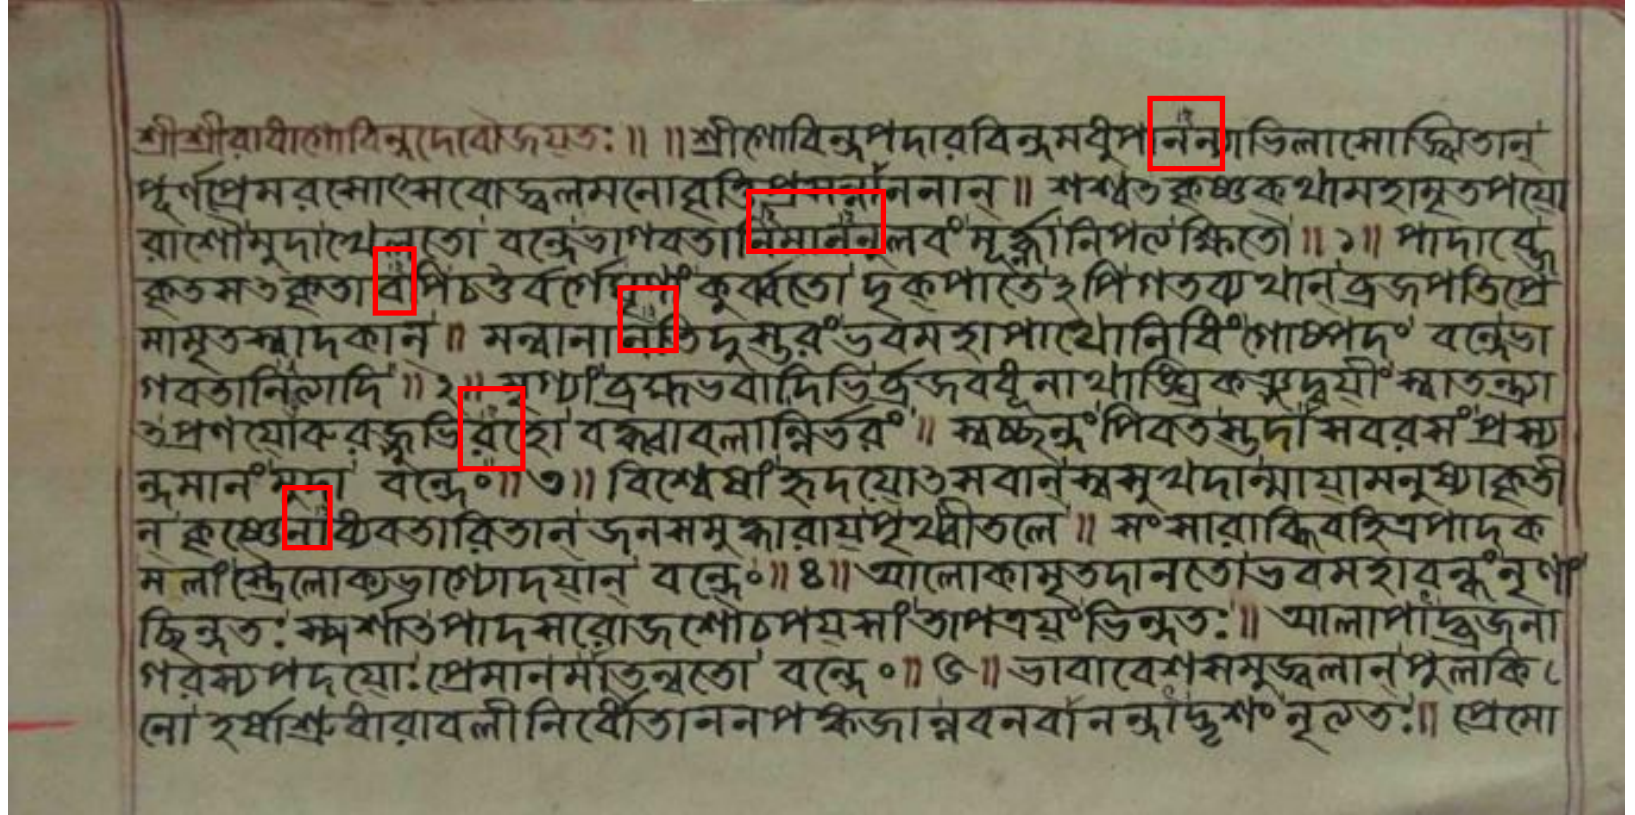 শ্রীশ্রীরাধাগোবিন্দদেবৌজয়তঃ॥ ॥শ্রীগোবিন্দপদারবিন্দমধুপানন্যাভিলাসোজ্ঝিতান্
পূর্ণপ্রেমরসোৎসবোজ্জ্বলমনোবৃত্তিপ্রসন্নাননান্॥ শশ্বতকৃষ্ণকথামহামৃতপয়ো
রাশৌমুদাখেলতো বন্দেভাগবতানিমাননুলবং মূর্দ্ধ্নানিপত্যক্ষিতৌ॥১॥ পাদাব্জে
কৃতসতকৃতাবপিচতুর্বর্গে কুর্ব্বতো দৃক্পাতেঽপিগতব্যথান্ ব্রজপতিপ্রে
মামৃতস্বাদকান্॥ মন্বানানতিদুস্তরংভবমহাপাথোনিধিংগোষ্পদং বন্দেভা
গবতানিত্যাদি॥২॥ মৃগ্যাংব্রহ্মভবাদিভির্ব্রজবধূনাথাঙ্ঘ্রিকঞ্জদ্বয়ীং স্বাতন্ত্র্যা
তপ্রণয়োরুরজ্জুভিরহো বদ্ধ্বাবলান্নির্ভরং॥ স্বচ্ছন্দংপিবতস্তদাসবরসংপ্রস্য
ন্দমানংমুদা বন্দে॰॥৩॥ বিশ্বেষাংহৃদয়োতসবান্স্বসুখদান্মায়ামনুষ্যাকৃতী
ন্ কৃষ্ণেনাধ্যবতারিতান্ জনসমুদ্ধারায়পৃথ্বীতলে॥ সংসারাব্ধিবহিত্রপাদক
মলাংস্ত্রৈলোক্যভাগ্যোদয়ান্ বন্দে॰॥৪॥ আলোকামৃতদানতোভবমহাবন্ধংনৃণাং
ছিন্দতঃ স্পর্শাতপাদসরোজশৌচপয়সাংতাপত্রয়ংভিন্দতঃ॥ আলাপাদ্ব্রজনা
গরস্যপদয়োঃপ্রেমানমাতন্বতো বন্দে॰॥৫॥ ভাবাবেশসমুজ্জ্বলান্পুলকি
নো হর্ষাশ্রুধারাবলীনির্ধৌতাননপঙ্কজান্নবনবানন্দাদ্ভৃশংনৃত্যতঃ॥ প্রেমো